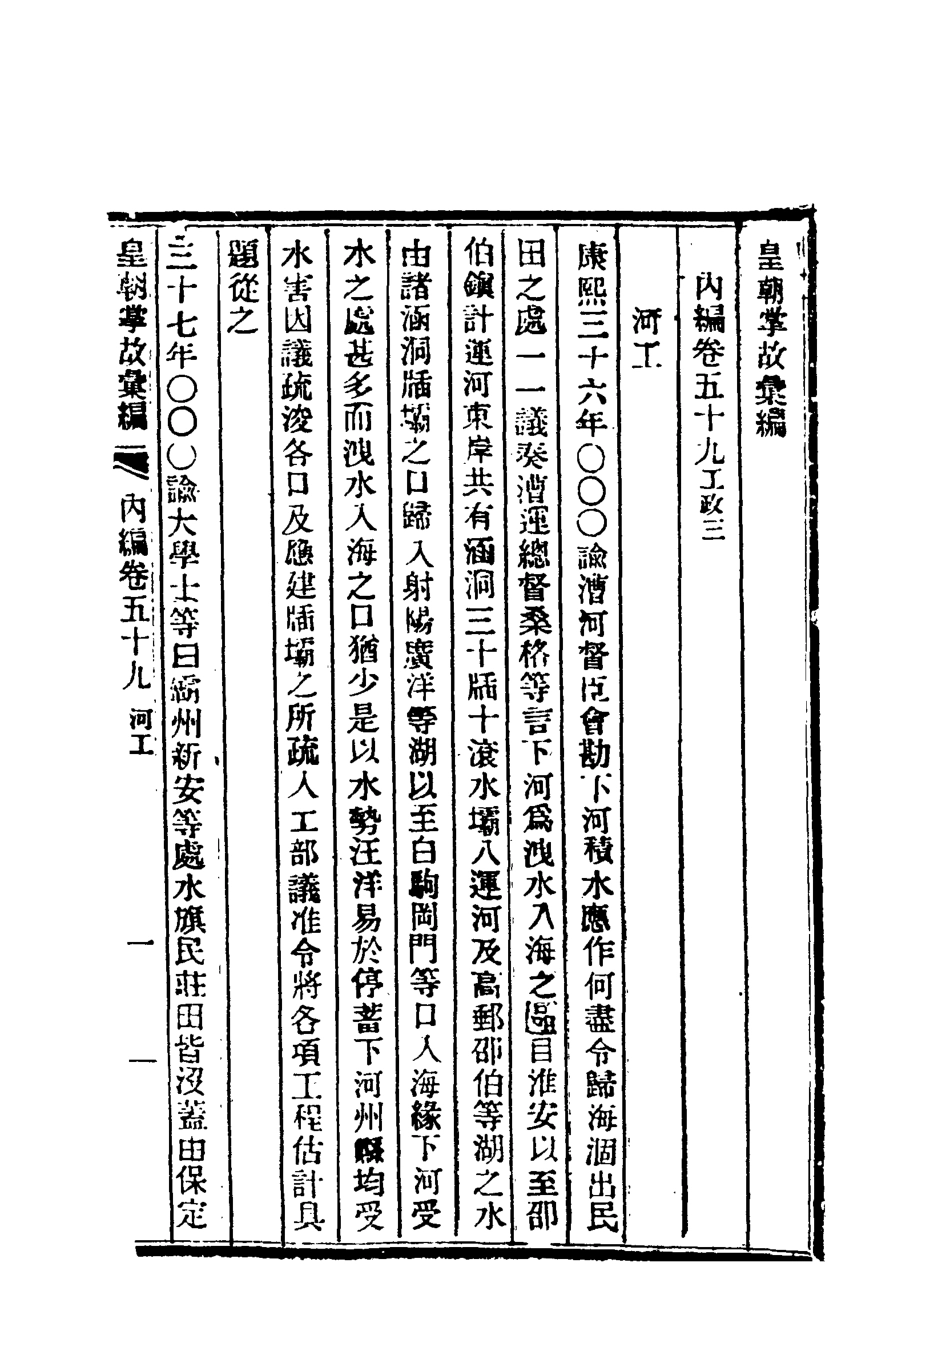 皇朝掌故彙編
內編卷五十九工政三
河工
康熙三十六年〇〇〇諭漕河督臣會勘下河積水應作何盡令歸海涸出民
田之處一一議奏漕運總督桑格等言下河爲洩水入海之區自淮安以至邵
伯鎭計運河東岸共有涵洞三十牐十滾水壩八運河及高郵邵伯等湖之水
由諸涵洞牐壩之口歸入射陽廣洋等湖以至白駒岡門等口入海緣下河受
水之處甚多而洩水入海之口猶少是以水勢汪洋易於停蓄下河州縣均受
水害因議疏浚各口及應建牐壩之所疏入工部議准令將各項工程估計具
題從之
三十七年〇〇〇諭大學士等曰霸州新安等處水旗民莊田皆沒蓋由保定
皇朝掌故彙編 內編卷五十九 河工 一 一